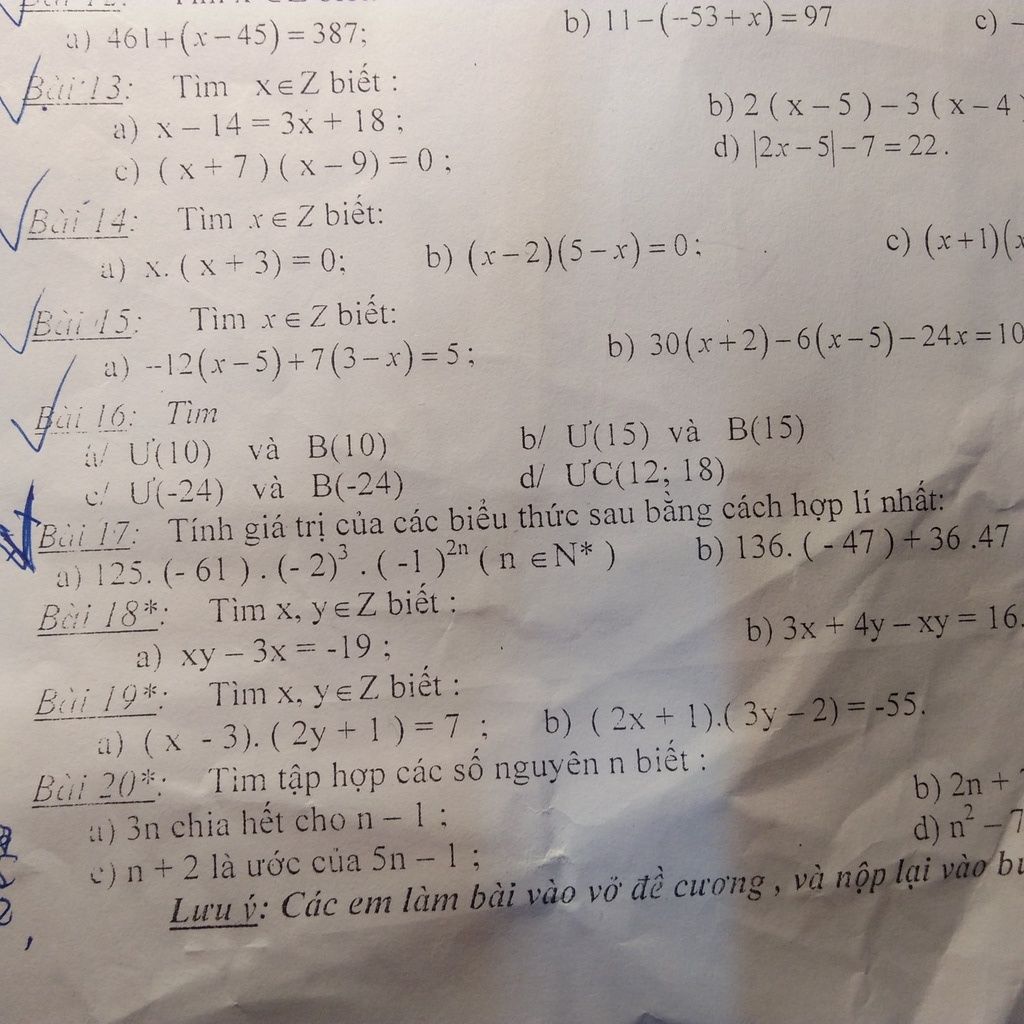 a) 461+(x−45)=387; b) 11−(−53+x)=97 c) −
Bài 13: Tìm x∈Z biết :
a) x − 14 = 3x + 18 ; b) 2 ( x − 5 ) − 3 ( x − 4 )
c) ( x + 7 ) ( x − 9) = 0 ; d) |2x − 5| − 7 = 22.
Bài 14: Tìm x∈Z biết:
a) x. ( x + 3) = 0; b) (x−2)(5−x)=0; c) (x+1)(x
Bài 15: Tìm x∈Z biết:
a) −12(x−5)+7(3−x)=5; b) 30(x+2)−6(x−5)−24x=10
Bài 16: Tìm
a/ Ư(10) và B(10) b/ Ư(15) và B(15)
c/ Ư(-24) và B(-24) d/ ƯC(12; 18)
Bài 17: Tính giá trị của các biểu thức sau bằng cách hợp lí nhất:
a) 125. (- 61 ) . (- 2)³ . ( -1 )²ⁿ ( n ∈N* ) b) 136. ( - 47 ) + 36 .47
Bài 18*: Tìm x, y∈Z biết :
a) xy – 3x = -19 ; b) 3x + 4y – xy = 16.
Bài 19*: Tìm x, y∈Z biết :
a) ( x - 3). ( 2y + 1 ) = 7 ; b) ( 2x + 1).( 3y – 2) = -55.
Bài 20*: Tìm tập hợp các số nguyên n biết :
a) 3n chia hết cho n – 1 ; b) 2n +
c) n + 2 là ước của 5n – 1 ; d) n² – 7
Lưu ý: Các em làm bài vào vở đề cương , và nộp lại vào